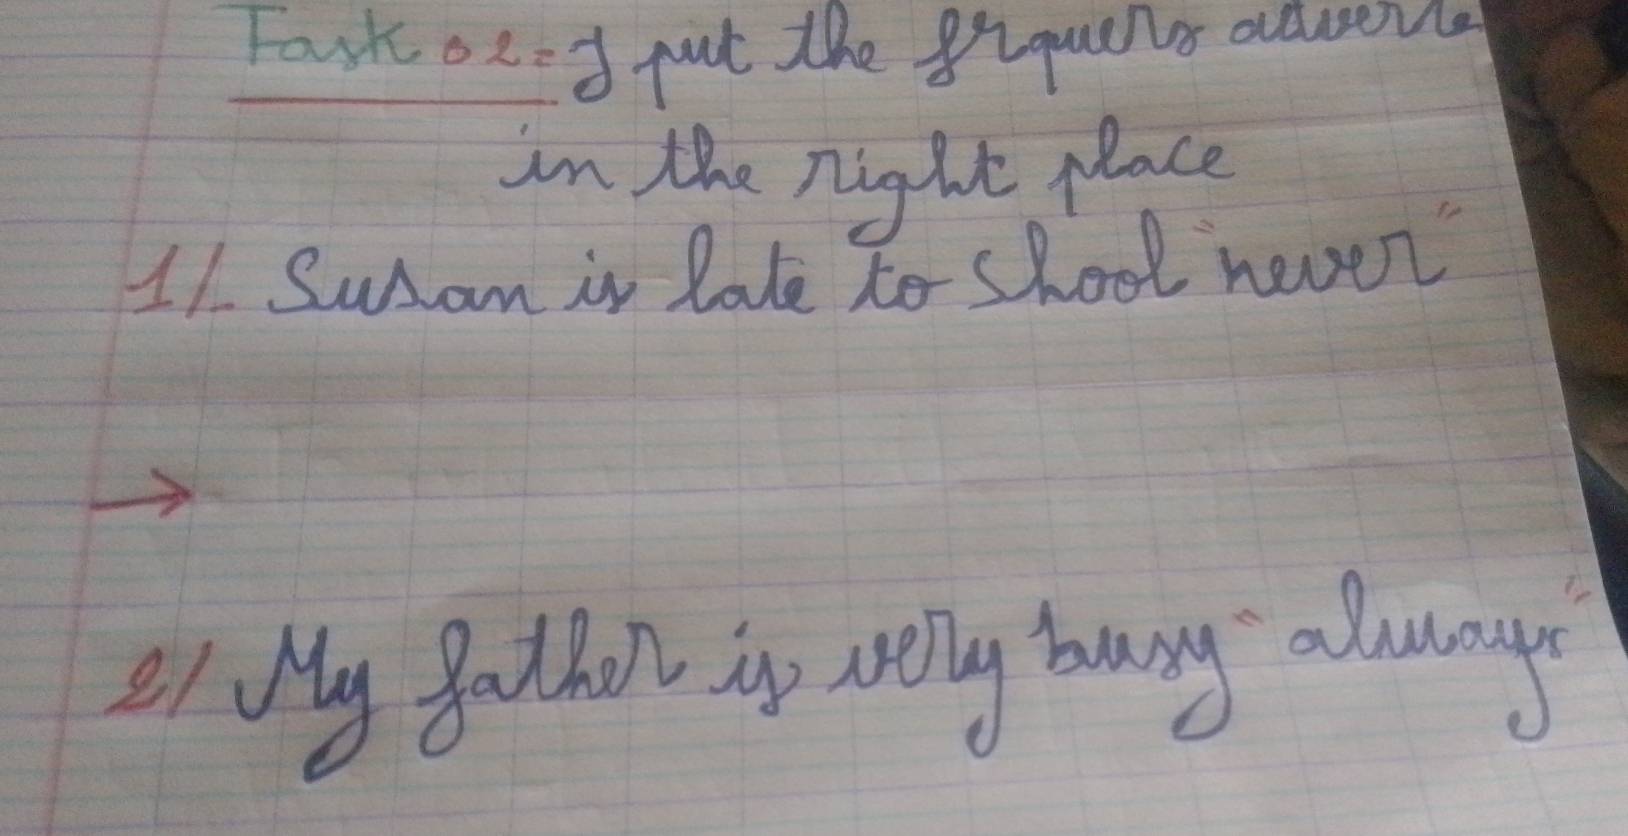 Task 02= I put the frquers adverls
in the right place
1/. Susan is late to Shool "never"
→
2/ My father is very busy "always"